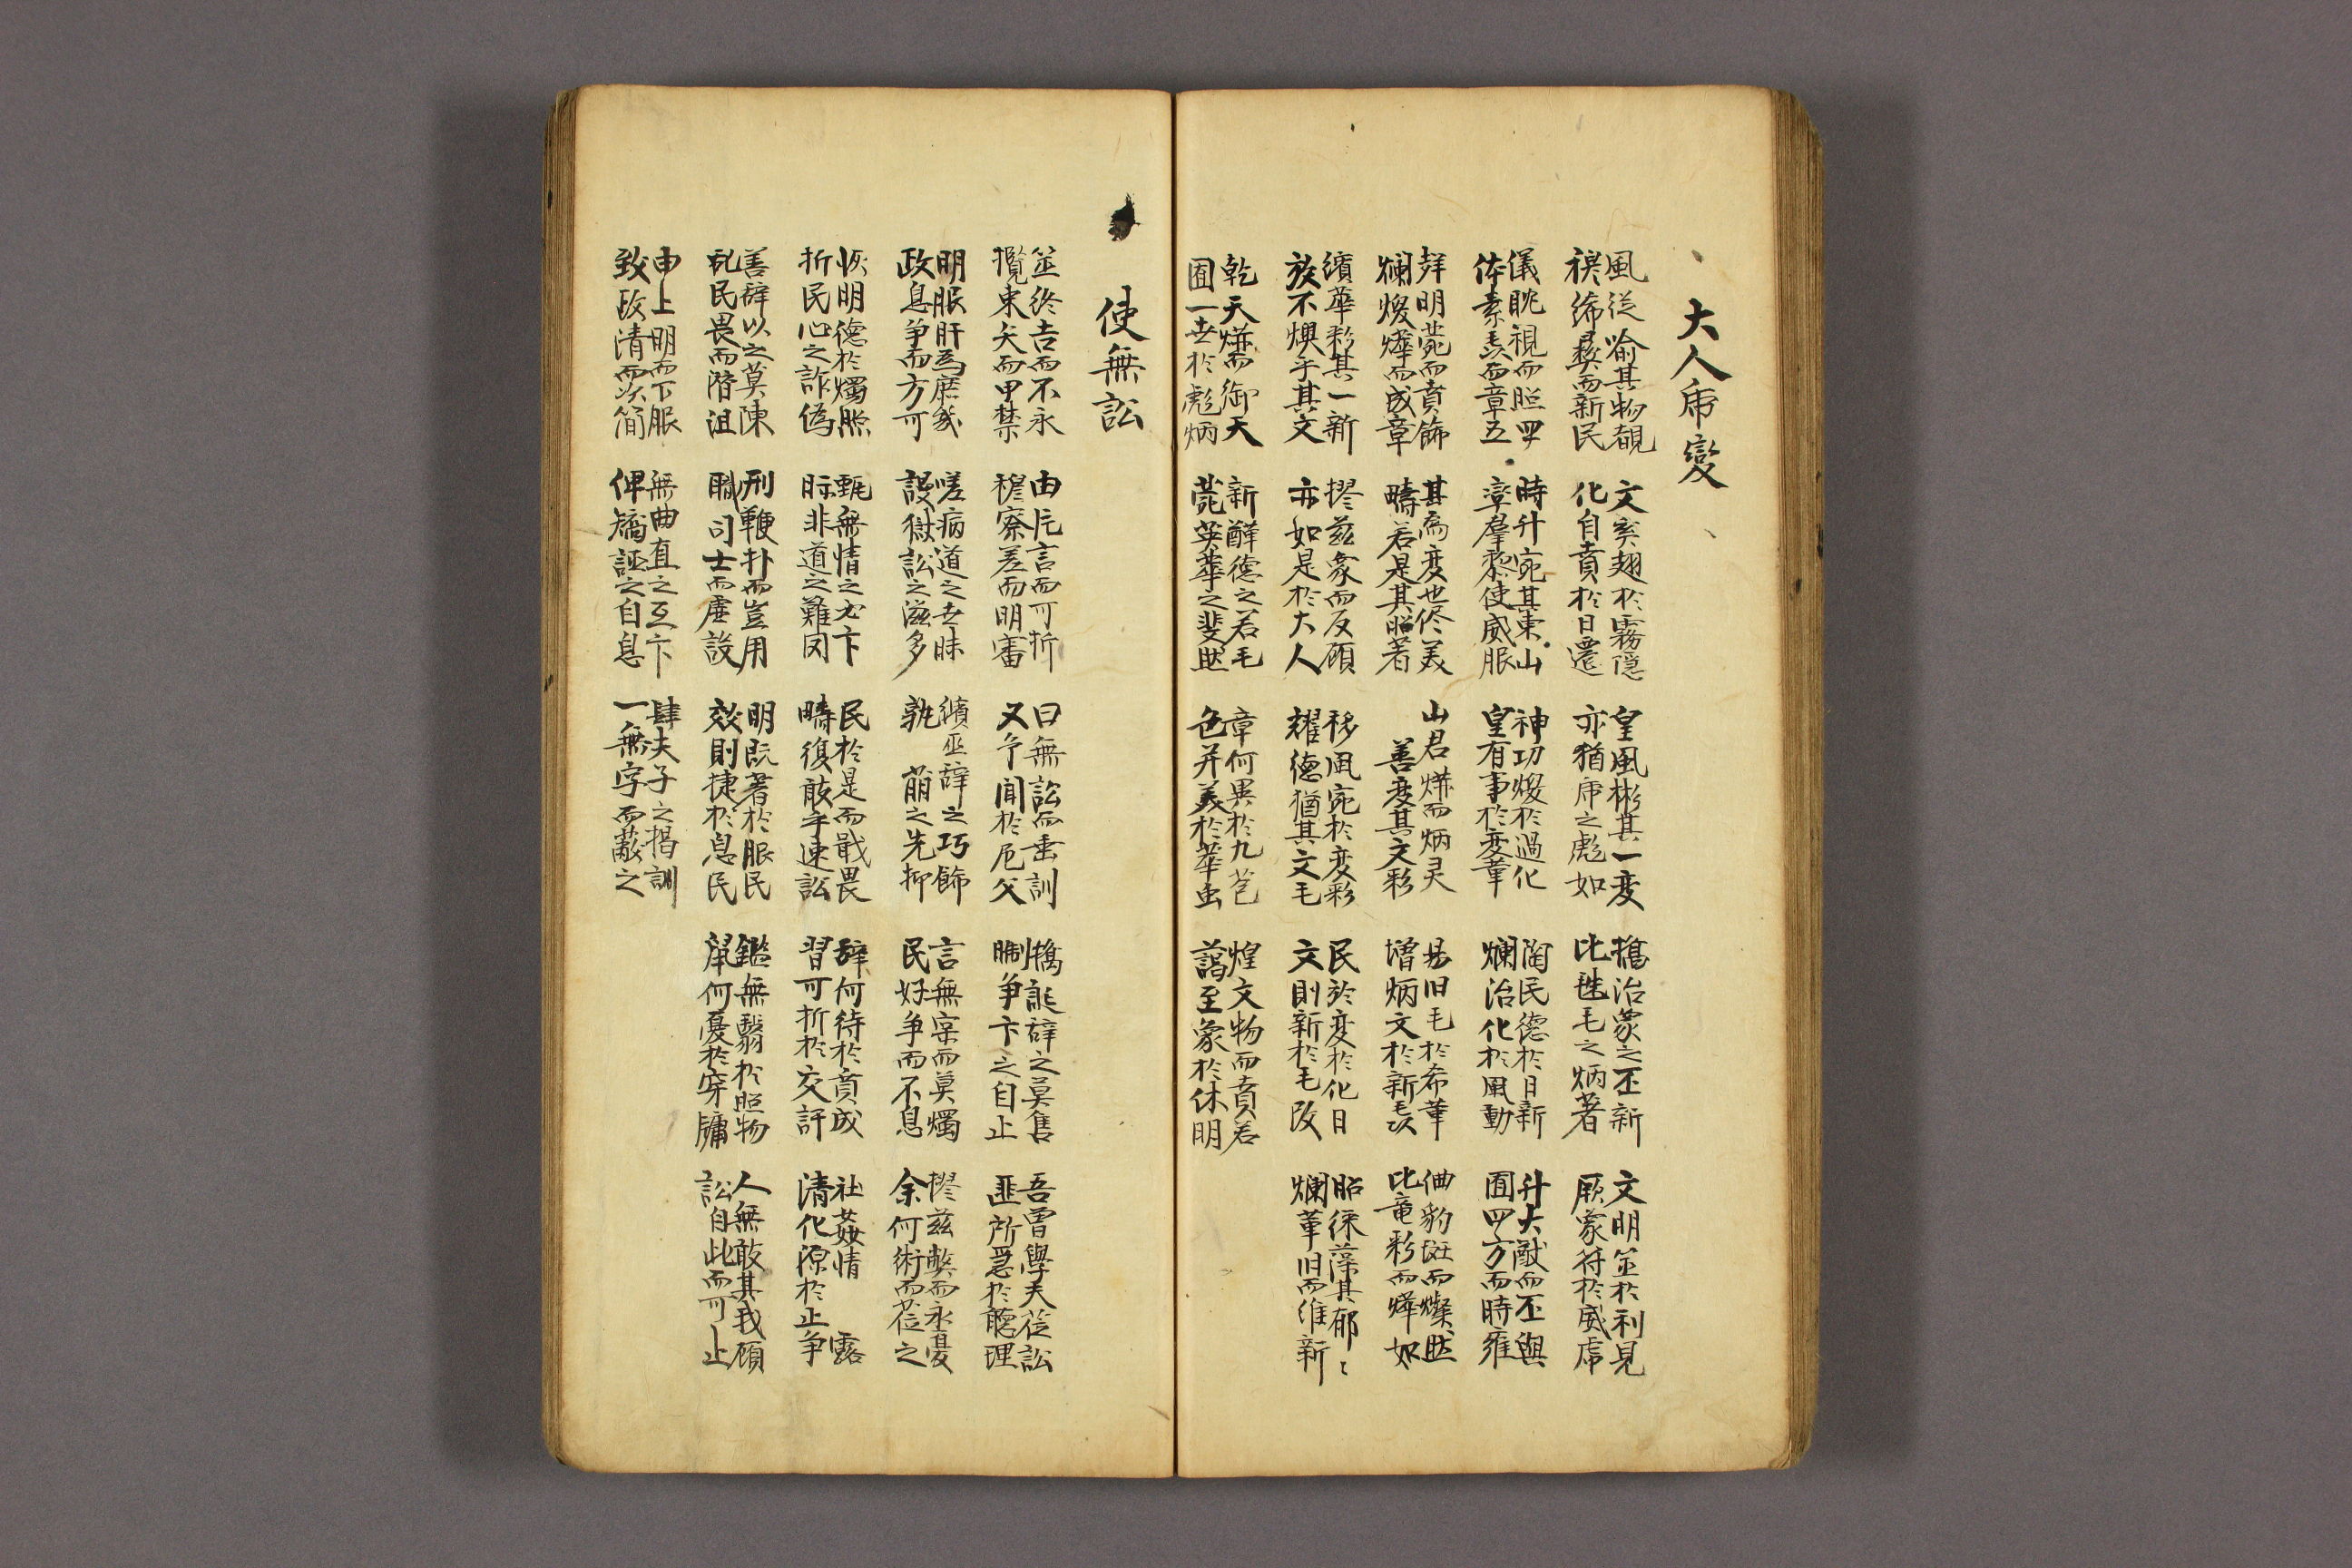 大人乕變
風從喩其物覩
禩絺彛而新民
文奚翅於霧隱
化自賁於日遷
皇風彬其一変
亦猶乕之彪如
攜治蒙之丕新
比毪毛之炳著
文明並於利見
厥蒙符於威乕
儀眈視而照四
体素責而章五
時升宛其東山
臺羣黎使威服
神功煥於過化
皇有事於変革
陶民德於日新
爛治化於風動
升大猷而丕與
囿四方而時雍
明蔸而賁飾
爛煥燁而成章
其爲変也修美
疇若是其昭著
山君燁而炳灵
善変其文彩
易旧毛於希革
增炳文於新毛
豹斑而燦然
比竜彩而燁如
繽華彩其一新
於不煥乎其文
擥兹象而反顧
亦如是於大人
移風宛於変彩
耀德猶其文毛
民於変於化日
文則新於毛改
昭徠藻其郁〻
爛革旧而維新
乾天燁而御天
囿一世於彪炳
新醳德之若毛
蔸英華之斐然
章何異於九苞
色并美於華虫
煌文物而賁若
謁至象於休明
使無訟
筮終吉而不永
攬束矢而甲禁
由片言而可折
稽察差而明審
曰無訟而垂訓
又今聞於尼父
攜誕辭之莫售
制争卞之自止
吾曺學夫莅訟
匪所急於聽理
明服肝爲庶幾
政息争而方可
嗟病道之世昧
設獄訟之滋多
繽巫辞之巧飾
孰萠之先抑
言無寀而莫燭
民好争而不息
擥兹弊而永憂
余何術而莅之
恢明德於燭照
折民心之詐僞
甄無情之必卞
眎非道之難罔
民於是而戢畏
疇復敢乎速訟
辞何待於賁成
習可折於交訐
社姦情露
清化源於止争
善辞以之莫陳
乱民畏而潛沮
刑鞭扑而豈用
職司士而虛設
明旣著於服民
效則捷於息民
鑑無翳於照物
鼠何憂於穿牗
人無敢其我碩
訟自此而可止
申上明而下服
致政清而次簡
無曲直之互卞
俾矯誣之自息
肆夫子之揭訓
一無字而蔽之